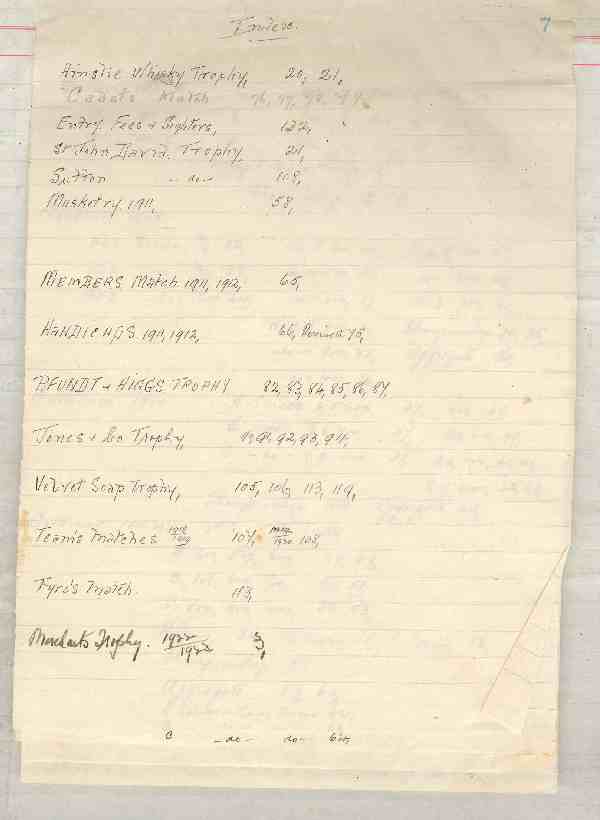 Index.
7
Ainslie Whisky Trophy, 20, 21,
Cadets Match 76, 77, 78, 79,
Entry Fees & Sighters, 122,
Sr John David. Trophy, 21,
Sutton -do- 108,
Musketry 1911, 58,
MEMBERS Match 1911, 1912, 65,
HANDICAPS 1911, 1912, 66, Revised 75,
BFUNDT & HIGGS TROPHY 82, 83, 84, 85, 86, 87,
Jones & Co Trophy, 92, 93, 94,
Velvet Soap Trophy, 105, 106, 113, 119,
Team's Matches 1918 1919 107, 1919 1920 108,
Tyro's Match. 113,
Merchants Trophy. 1922 1923 3,
-do- do-